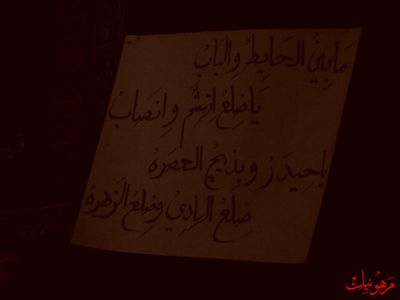 مَا بِينْ الحَايِطْ وِالْبَابْ
يَا ضِلِعْ اِنْهِشَمْ وِانْصَابْ
يَا حِيدَرْ وبْذِيچْ العَصْرَه
ضِلْعْ الهَادِي وضِلْعْ الزَهْرَه
مرهونيات